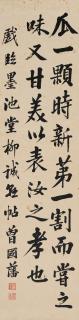 瓜一顆時新第一割而嘗之
味又甘美以表汝之孝也
戲臨墨池堂柳誠懸帖曾國藩